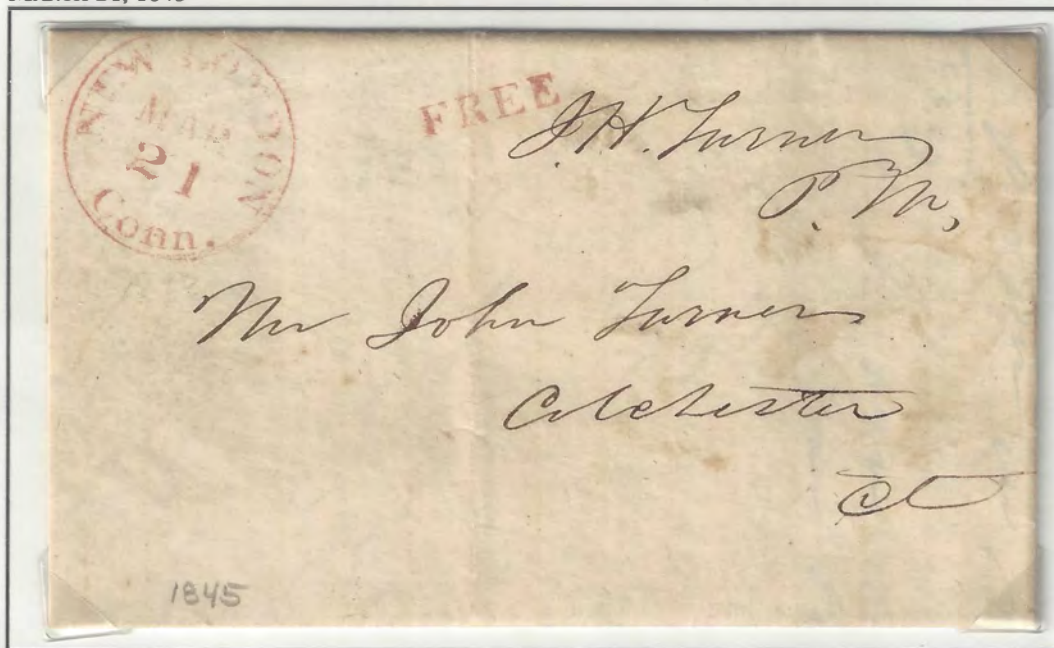 NEW LONDON
MAR
21
Conn.
FREE
J. H. Turner
P. M.,
Mr John Turner
Colchester
Ct
1845